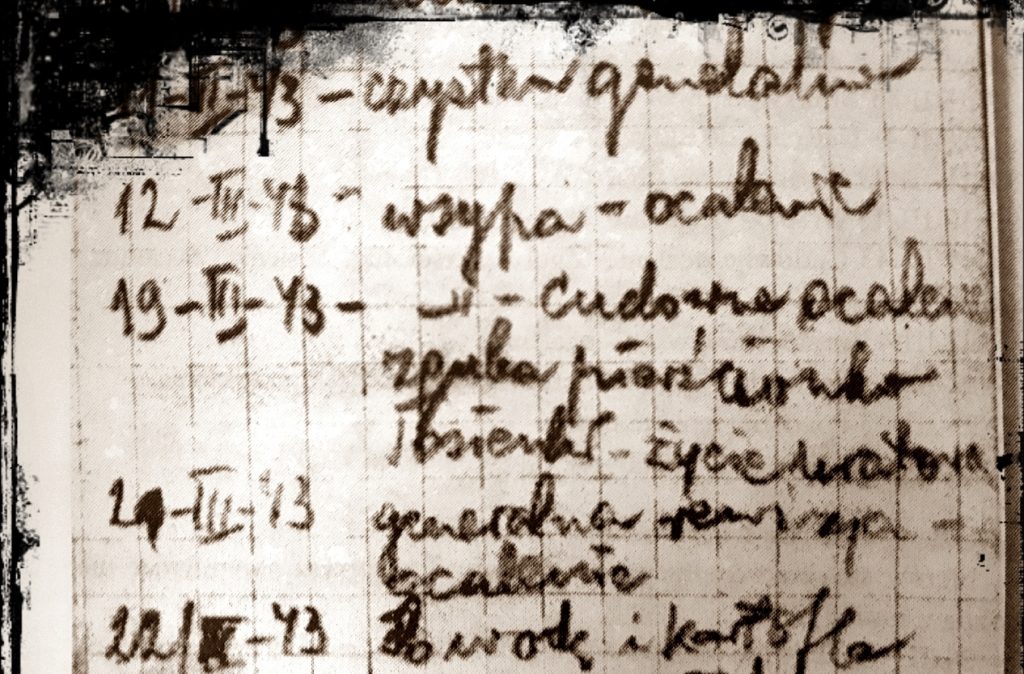 -II-43 - czystka gendalna
12-III-43 - wsypa - ocalenie
19-III-43 - -"- - cudowne ocalenie
zguba pierścionka
Tosieńki - życie uratowa
21-III-43 generalna rewizja -
ocalenie
22/III-43 Po wodę i kartofle